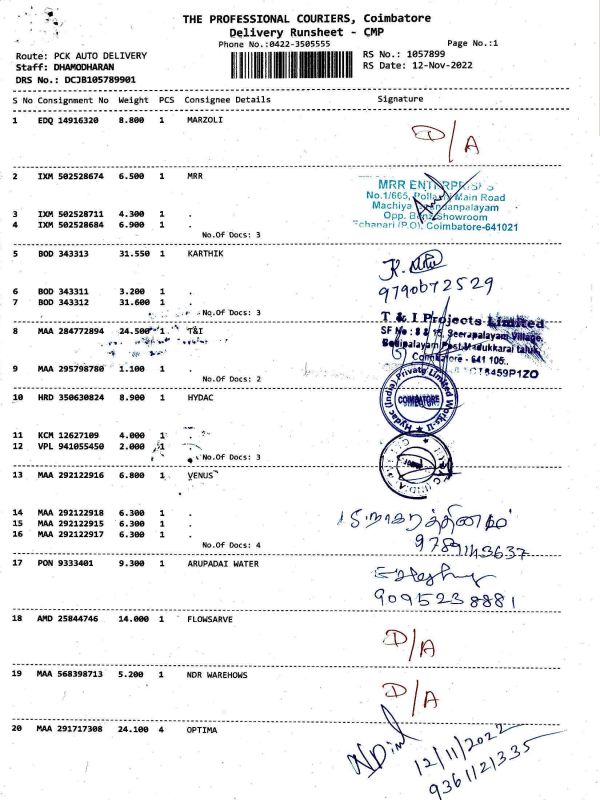 THE PROFESSIONAL COURIERS, Coimbatore
Delivery Runsheet - CMP
Phone No.:0422-3505555
Page No.:1
Route: PCK AUTO DELIVERY
RS No.: 1057899
Staff: DHAMODHARAN
RS Date: 12-Nov-2022
DRS No.: DCJB105789901
S No Consignment No Weight PCS Consignee Details Signature
1 EDQ 14916320 8.800 1 MARZOLI
D/A
2 IXM 502528674 6.500 1 MRR
MRR ENTERPRISES
No.1/665, Main Road
Machiya
3 IXM 502528711 4.300 1 .
Opp. Benz Showroom
4 IXM 502528684 6.900 1 .
(P.O), Coimbatore-641021
No.Of Docs: 3
5 BOD 343313 31.550 1 KARTHIK
9790672529
6 BOD 343311 3.200 1 .
7 BOD 343312 31.600 1 .
No.Of Docs: 3
T & I Projects Limited
8 MAA 284772894 24.500 1 T&I
SF No : 8 & 15, Seerapalayam Village,
Madukkarai taluk,
Coimbatore - 641 105.
9 MAA 295798780 1.100 1 .
No.Of Docs: 2
10 HRD 350630824 8.900 1 HYDAC
Hydac (India) Private Limited Works-II
COIMBATORE
11 KCM 12627109 4.000 1 .
12 VPL 941055450 2.000 1 .
No.Of Docs: 3
13 MAA 292122916 6.800 1 VENUS
14 MAA 292122918 6.300 1 .
15 MAA 292122915 6.300 1 .
16 MAA 292122917 6.300 1 .
நாகரத்தினம்
9789143637
No.Of Docs: 4
17 PON 9333401 9.300 1 ARUPADAI WATER
9095238881
18 AMD 25844746 14.000 1 FLOWSARVE
D/A
19 MAA 568398713 5.200 1 NDR WAREHOWS
D/A
20 MAA 291717308 24.100 4 OPTIMA
12/11/2022
9361121335